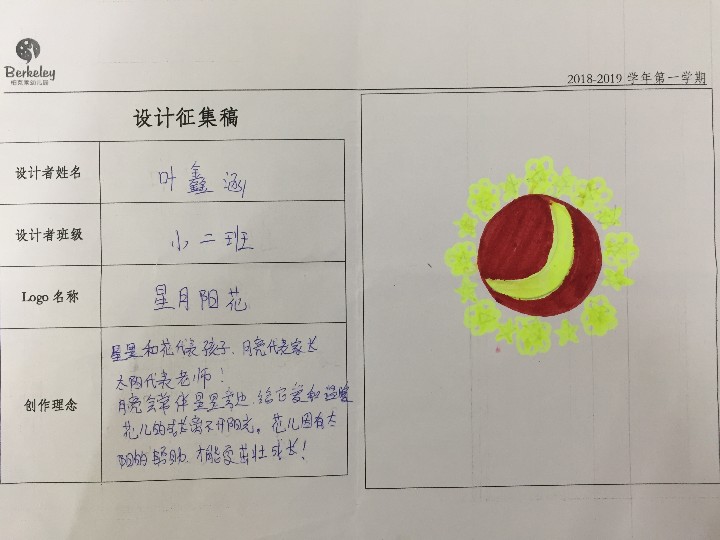 Berkeley
2018-2019 学年第一学期
设计征集稿
设计者姓名
叶鑫涵
设计者班级
小二班
Logo 名称
星月阳花
创作理念
星星和花代表孩子、月亮代表家长
太阳代表老师！
月亮会常伴星星旁边、给它爱和温暖
花儿的成长离不开阳光。花儿因有太
阳的帮助、才能变茁壮成长！